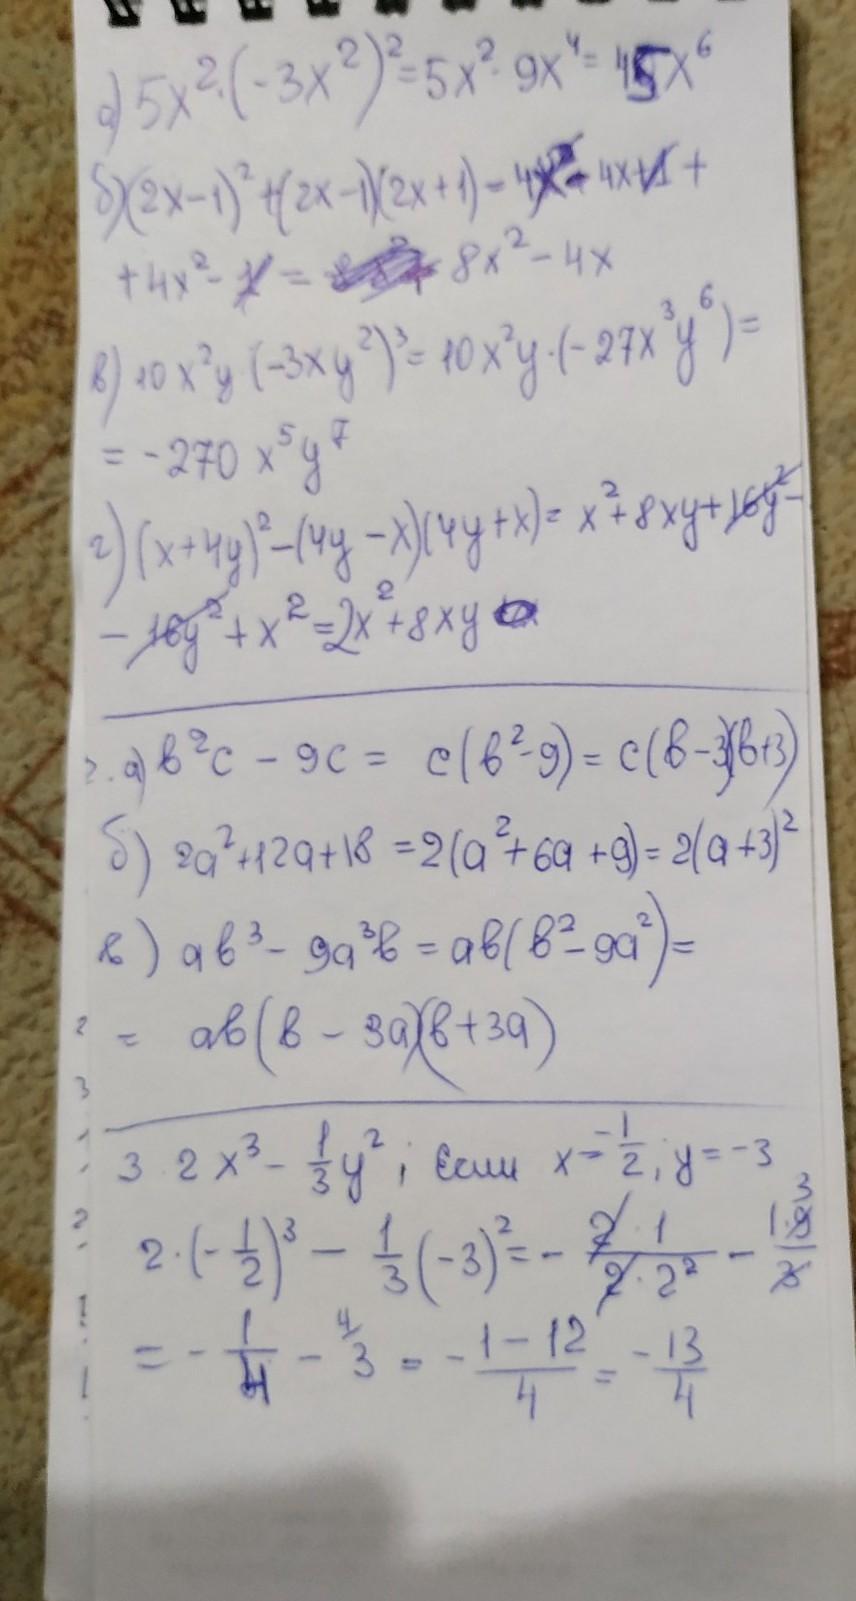 а) 5x²·(-3x²)² = 5x²·9x⁴ = 45x⁶
б) (2x-1)² + (2x-1)(2x+1) = 4x² - 4x + 1 +
+ 4x² - 1 = 8x² - 4x
в) 10x²y (-3xy²)³ = 10x²y·(-27x³y⁶) =
= -270 x⁵y⁷
г) (x+4y)² - (4y-x)(4y+x) = x² + 8xy + 16y² -
- 16y² + x² = 2x² + 8xy
2. а) b²c - 9c = c(b²-9) = c(b-3)(b+3)
б) 2a² + 12a + 18 = 2(a² + 6a + 9) = 2(a+3)²
в) ab³ - 9a³b = ab(b² - 9a²) =
= ab(b - 3a)(b + 3a)
3 2x³ - 1/3 y²; Если x = -1/2; y = -3
2·(-1/2)³ - 1/3 (-3)² = - 2·1/2·2² - 1·9/3 3
= - 1/4 - 4/3 = - 1-12/4 = - 13/4